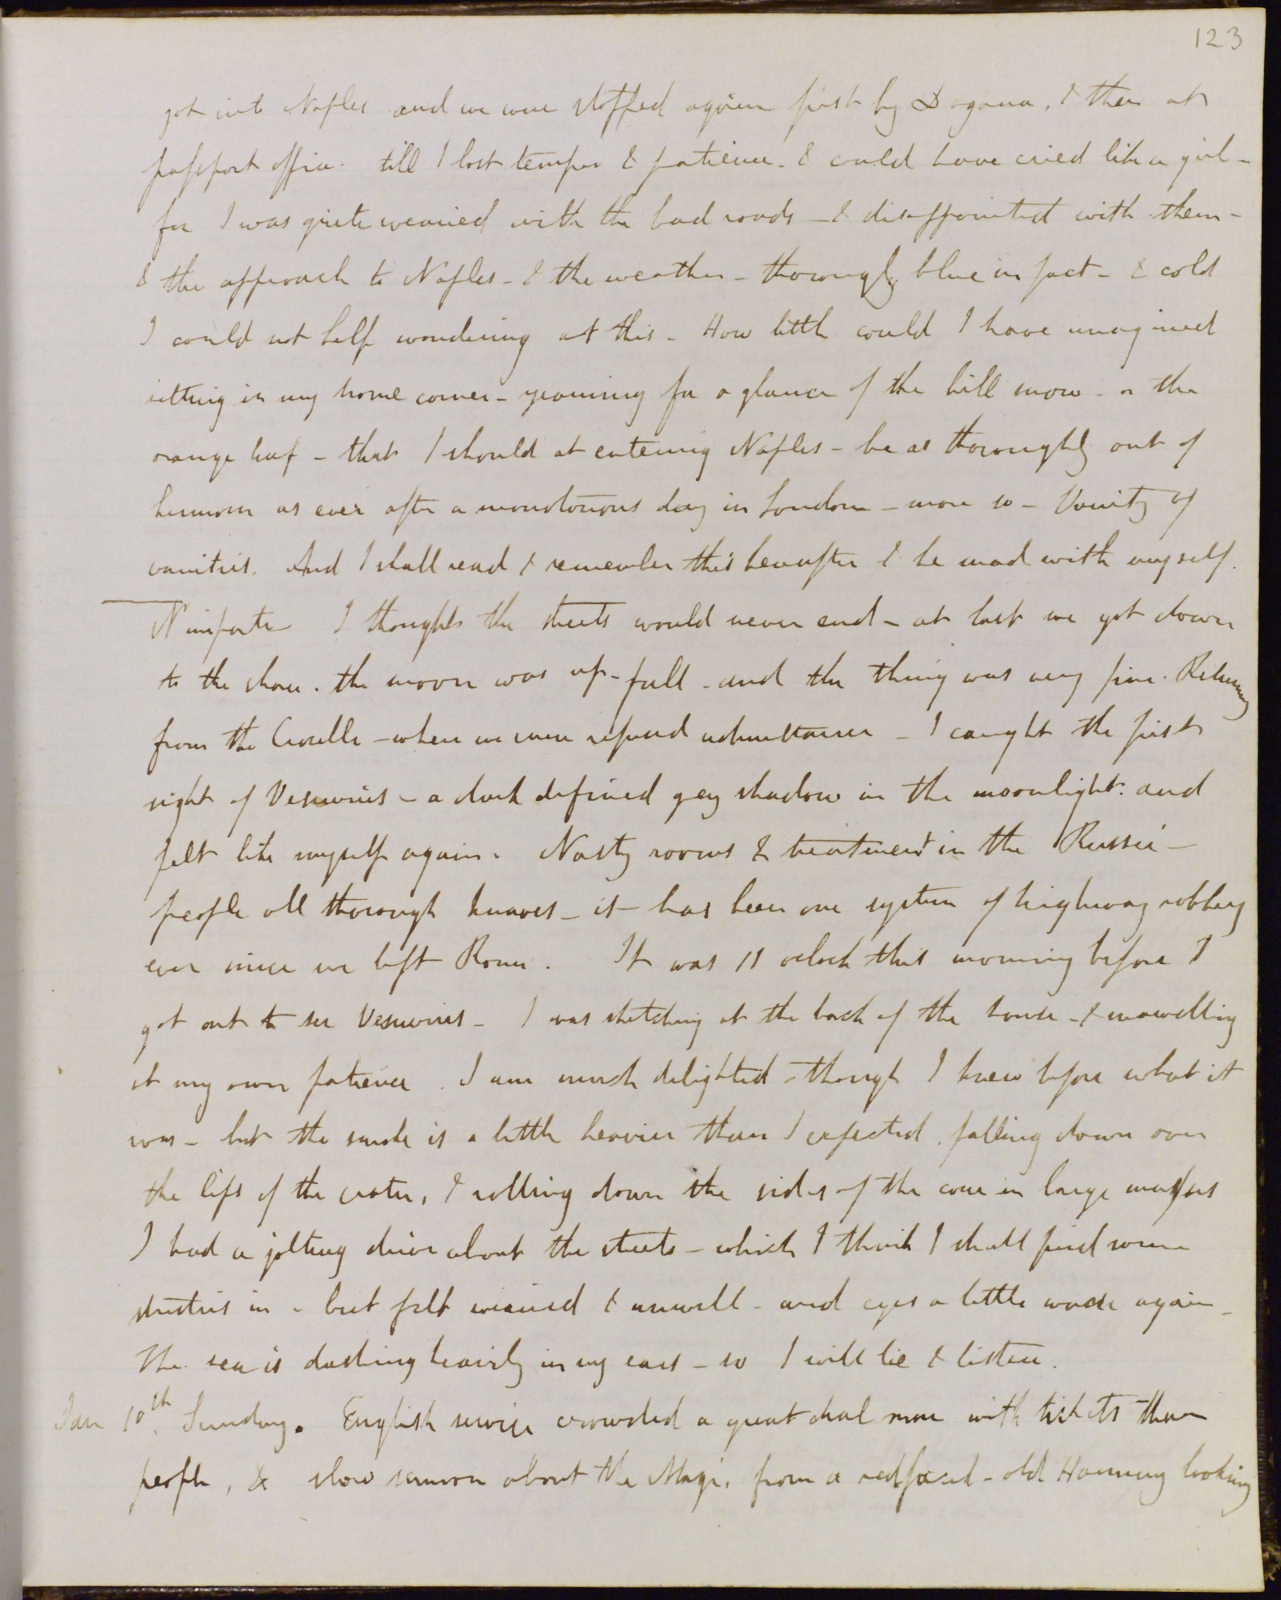 123
got into Naples and we were stopped again first by Dogana, & then at
passport office - till I lost temper & patience. I could have cried like a girl -
for I was quite wearied with the bad roads - & disappointed with them -
& the approach to Naples - & the weather - thoroughly blue in fact - & cold
I could not help wondering at this - How little could I have imagined
sitting in my home corner - yearning for a glance of the hill snow - or the
orange leaf - that I should at entering Naples - be as thoroughly out of
humour as ever after a monotonous day in London - more so - Vanity of
vanities. And I shall read & remember this hereafter & be mad with myself.
N'importe I thought the streets would never end - at last we got down
to the shore. the moon was up - full - and the thing was very fine. Returning
from the Crocelle - where we were refused admittance - I caught the first
sight of Vesuvius - a dark defined grey shadow in the moonlight: and
felt like myself again. Nasty rooms & treatment in the Russie -
people all thorough knaves - it has been one system of highway robbery
ever since we left Rome. It was 11 oclock this morning before I
got out to see Vesuvius - I was sketching at the back of the house - & marvelling
at my own patience. I am much delighted - though I knew before what it
was - but the smoke is a little heavier than I expected, falling down over
the lips of the crater, & rolling down the sides of the cone in large masses
I had a jolting drive about the streets - which I think I shall find some
studies in - but felt wearied & unwell - and eyes a little weak again -
The sea is dashing heavily in my ears - so I will lie & listen.
Jan 10th. Sunday. English service crowded a great deal more with tickets than
people, & slow sermon about the Magi, from a redfaced - old looking